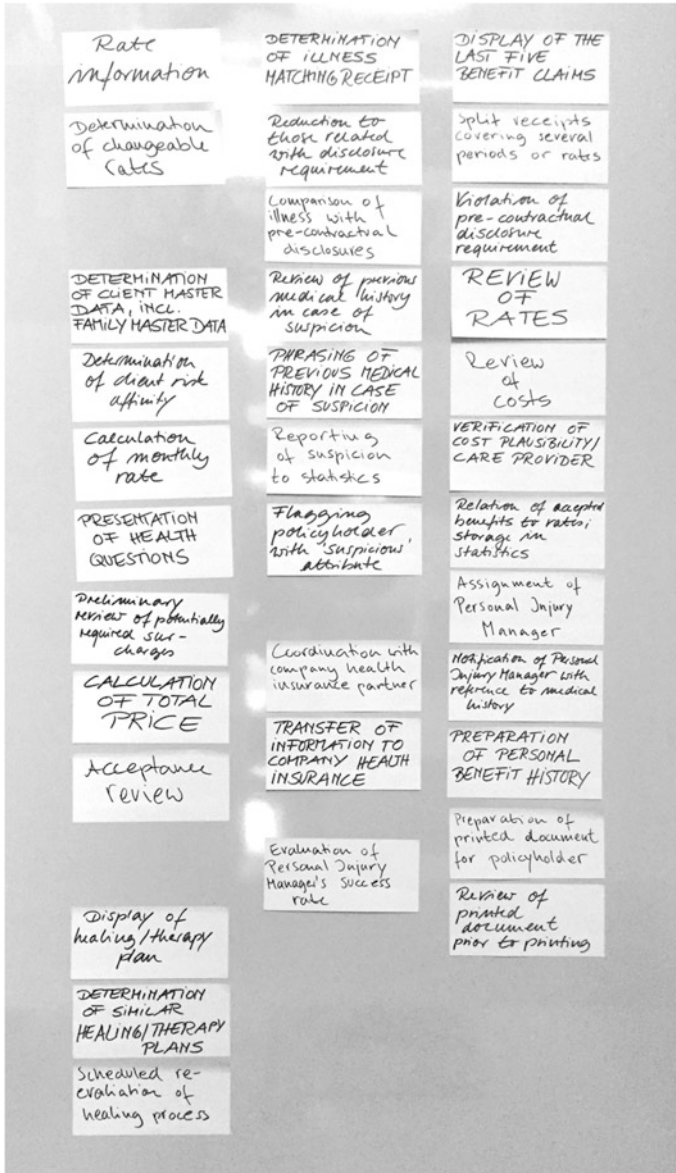 Rate
information
Determination
of changeable
rates
DETERMINATION
OF CLIENT MASTER
DATA, INCL.
FAMILY MASTER DATA
Determination
of client risk
affinity
Calculation
of monthly
rate
PRESENTATION
OF HEALTH
QUESTIONS
Preliminary
review of potentially
required sur-
charges
CALCULATION
OF TOTAL
PRICE
Acceptance
review
Display of
healing/therapy
plan
DETERMINATION
OF SIMILAR
HEALING/THERAPY
PLANS
Scheduled re-
evaluation of
healing process
DETERMINATION
OF ILLNESS
MATCHING RECEIPT
Reduction to
those related
with disclosure
requirement
Comparison of
illness with
pre-contractual
disclosures
Review of previous
medical history
in case of
suspicion
PHRASING OF
PREVIOUS MEDICAL
HISTORY IN CASE
OF SUSPICION
Reporting
of suspicion
to statistics
Flagging
policyholder
with 'suspicious'
attribute
Coordination with
company health
insurance partner
TRANSFER OF
INFORMATION TO
COMPANY HEALTH
INSURANCE
Evaluation of
Personal Injury
Manager's success
rate
DISPLAY OF THE
LAST FIVE
BENEFIT CLAIMS
Split receipts
covering several
periods or rates
Violation of
pre-contractual
disclosure
requirement
REVIEW
OF
RATES
Review
of
costs
VERIFICATION OF
COST PLAUSIBILITY/
CARE PROVIDER
Relation of accepted
benefits to rates;
storage in
statistics
Assignment of
Personal Injury
Manager
Notification of Personal
Injury Manager with
reference to medical
history
PREPARATION
OF PERSONAL
BENEFIT HISTORY
Preparation of
printed document
for policyholder
Review of
printed
document
prior to printing